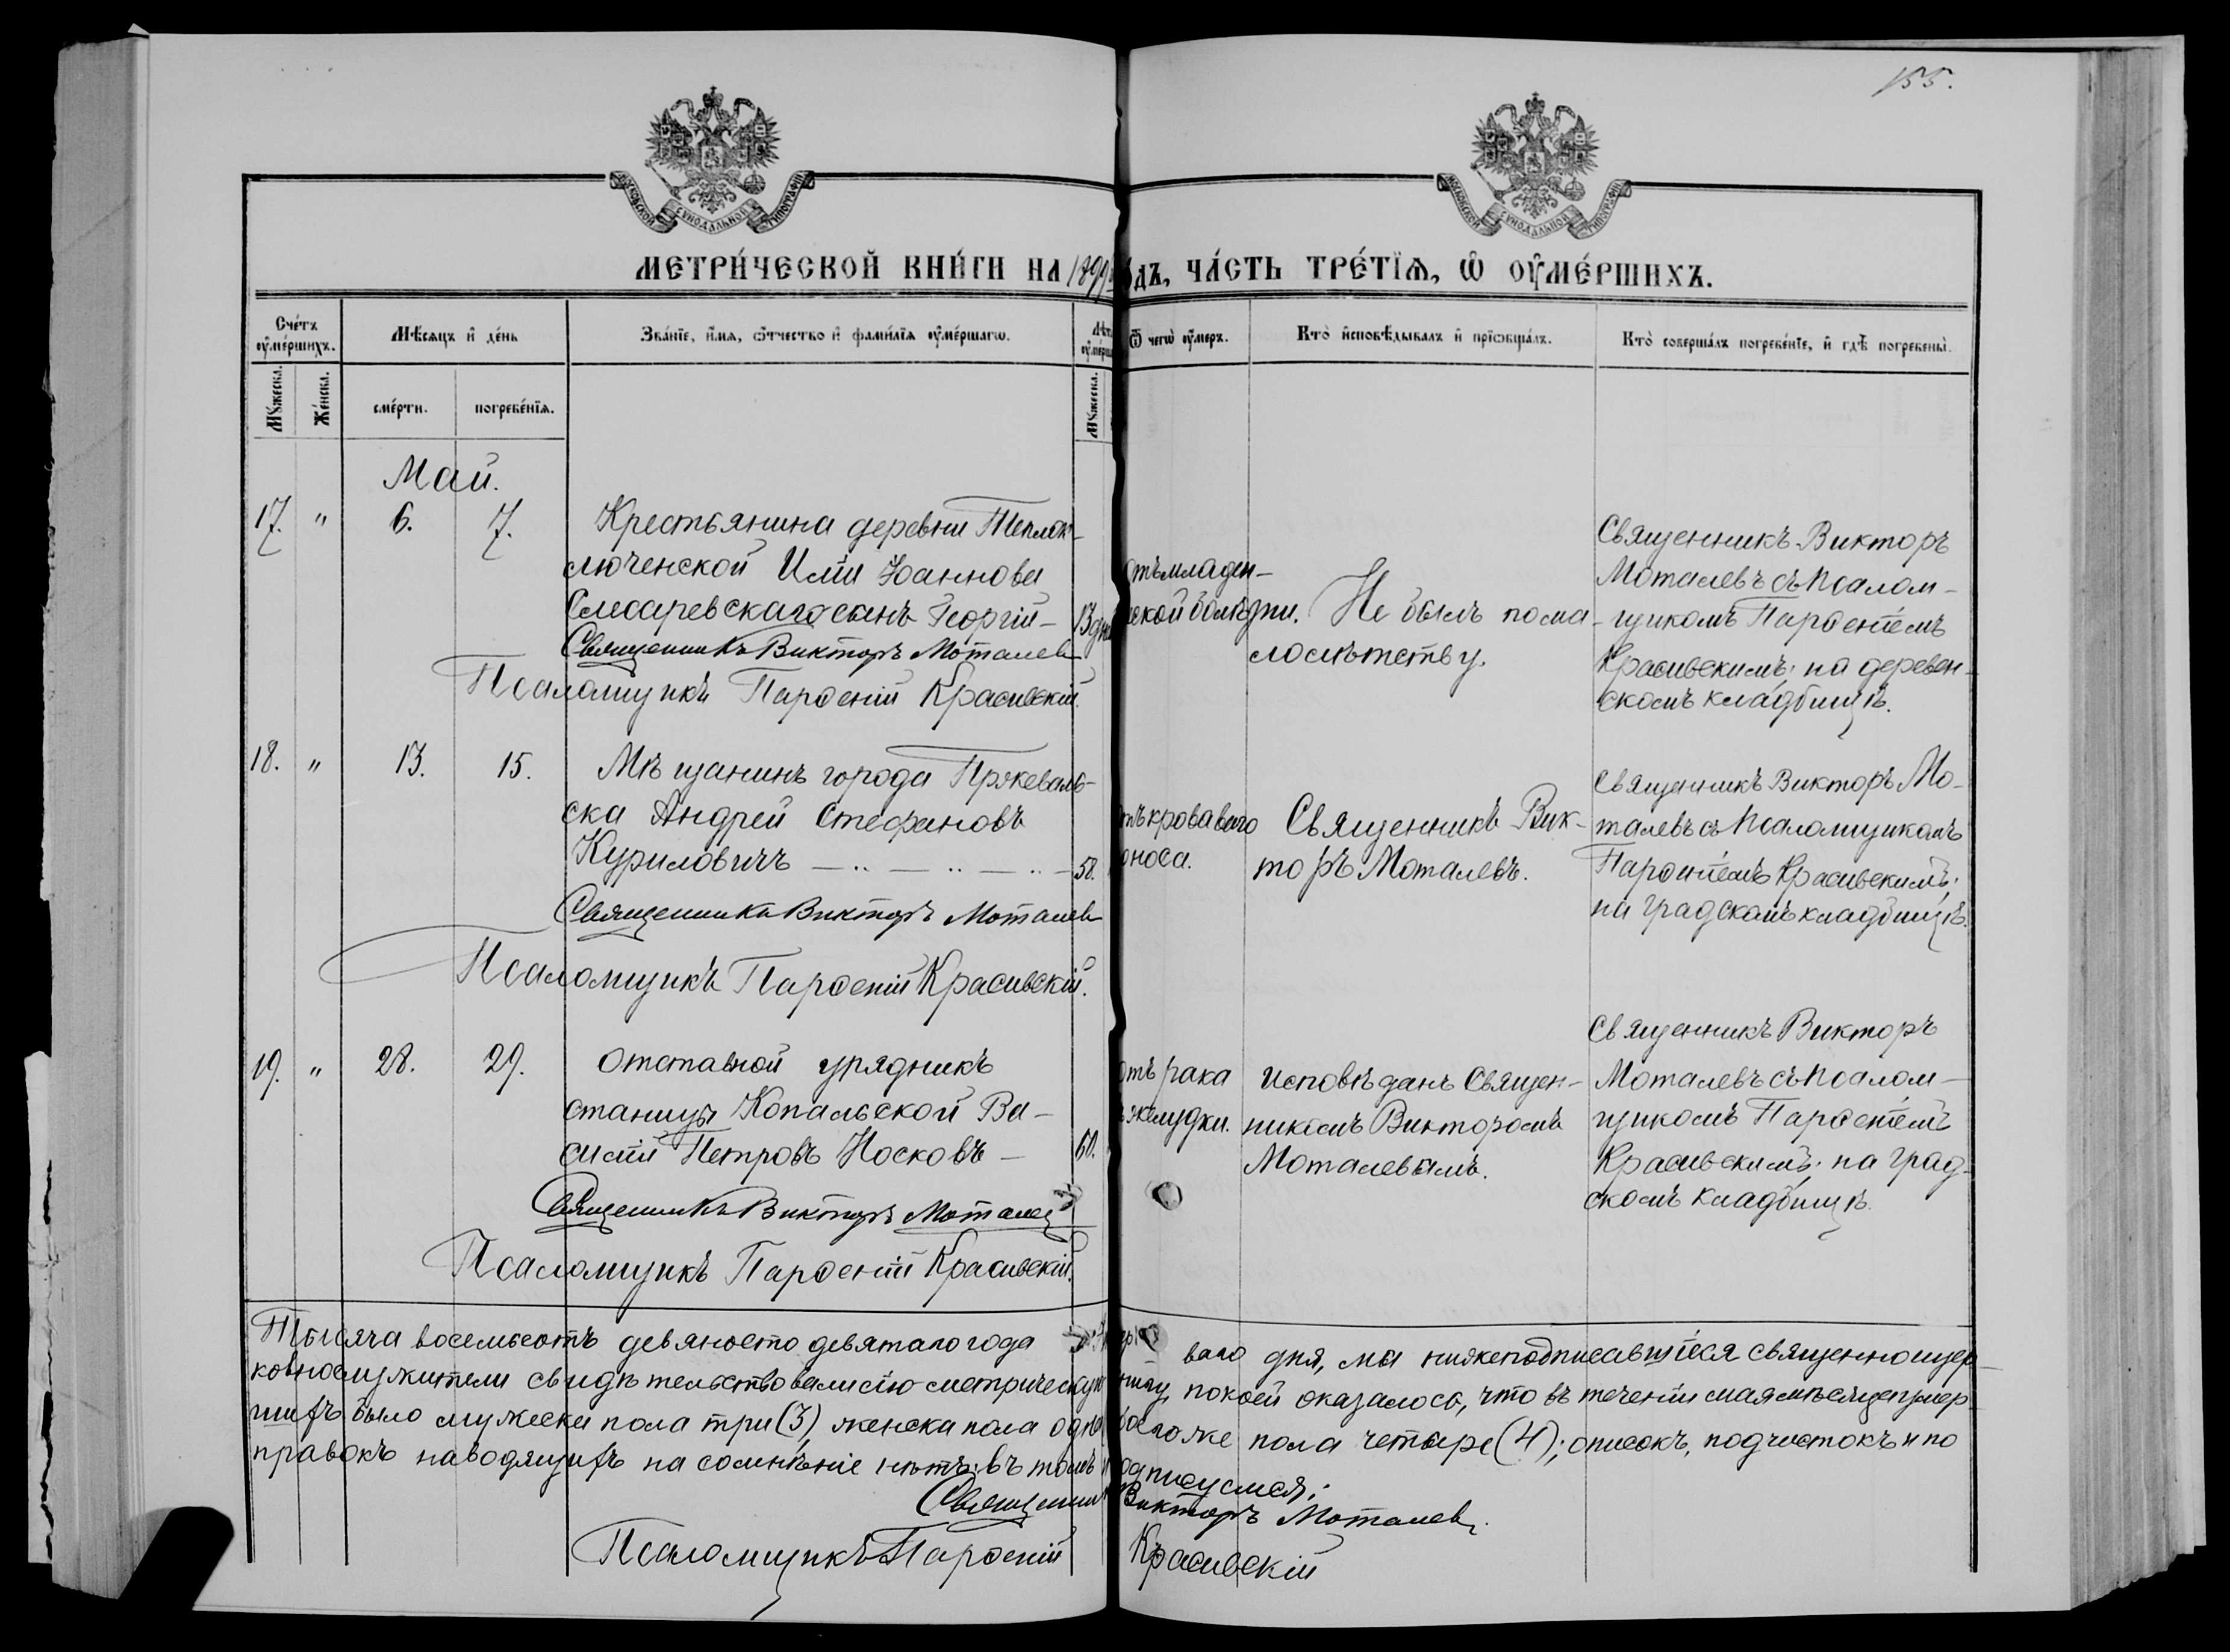 155.
МОСКОВСКОЙ СѴНОДАЛЬНОЙ ТИПОГРАФІИ
МОСКОВСКОЙ СѴНОДАЛЬНОЙ ТИПОГРАФІИ
МЕТРИ́ЧЕСКОЙ КНИ́ГИ НА 1899 ГОДЪ, ЧА́СТЬ ТРЕ́ТІѦ, Ѡ ОУ҆МЕ́РШИХЪ.
Сче́тъ оу҆ме́ршихъ.
Мѣ́сяцъ и҆ де́нь
Зва́ніе, и҆́мя, ѻ҆́тчество и҆ фами́лїя оу҆ме́ршагѡ.
Ѿ чегѡ̀ оу҆́меръ.
Кто̀ и҆сповѣ́дывалъ и҆ прїѡбща́лъ.
Кто̀ соверша́лъ погребе́нїе, и҆ гдѣ̀ погребены̀.
Мꙋ́жеска.
Же́нска.
сме́рти.
погребе́нїя.
Мꙋ́жеска.
Май.
17. " 6. 7. Крестьянина деревни Теплок-
люченской Иліи Іоаннова
Слесаревскаго сынъ Георгій – 13 дн
Священникъ Викторъ Моталев
Псаломщикъ Парѳеній Красивскій.
отъ младен-
ской болѣзни.
Не былъ по ма-
лолѣтству.
Священникъ Викторъ
Моталевъ съ псалом-
щикомъ Парѳеніемъ
Красивскимъ; на деревен-
скомъ кладбищѣ.
18. " 13. 15. Мѣщанинъ города Пржеваль-
ска Андрей Стефановъ
Куриловичъ — .. — .. — .. — 58.
Священникъ Викторъ Моталев
Псаломщикъ Парѳеній Красивскій.
отъ кроваваго
поноса.
Священникъ Вик-
торъ Моталевъ.
Священникъ Викторъ Мо-
талевъ съ псаломщикомъ
Парѳеніемъ Красивскимъ;
на градскомъ кладбищѣ.
19. " 28. 29. Отставной урядникъ
станицы Копальской Ва-
силій Петровъ Носковъ — 60.
Священникъ Викторъ Моталев
Псаломщикъ Парѳеній Красивскій.
отъ рака
желудки.
Исповѣданъ Священ-
никомъ Викторомъ
Моталевымъ.
Священникъ Викторъ
Моталевъ съ псалом-
щикомъ Парѳеніемъ
Красивскимъ; на град-
скомъ кладбищѣ.
Тысяча восемьсотъ девяносто девятаго года ваго дня, мы нижеподписавшіеся священноцер-
ковнослужители свидѣтельствовали сію метрическую книгу, по коей оказалось, что въ теченіи мая мѣсяца умер
шихъ было мужеска пола три (3), женска пола одна обоего же пола четыре (4); описокъ, подчистокъ и по
правокъ наводящихъ на сомнѣніе нѣтъ; въ томъ и подписуемся:
Священник Викторъ Моталев.
Псаломщикъ Парѳеній Красивскій